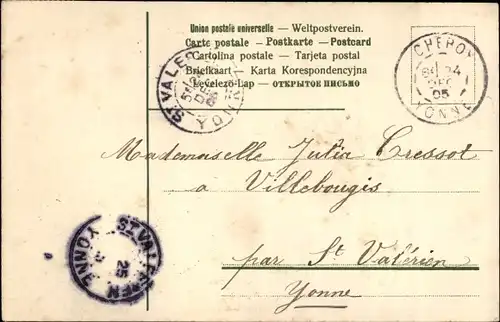 Union postale universelle — Weltpostverein.
Carte postale — Postkarte — Postcard
Cartolina postale — Tarjeta postal
Briefkaart — Karta Korespondencyjna
Levelező-Lap — ОТКРЫТОЕ ПИСЬМО
CHEROY
24
DEC
05
YONNE
ST VALER
YONNE
Mademoiselle Julia Cressot
a Villebougis
par St Valérien
Yonne
ST VALERIEN
25
YONNE